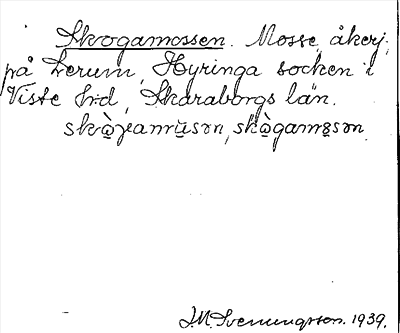 Skogamossen. Mosse, åkerj.
på Lerum, Hyringa socken i
Viste h:d, Skaraborgs län.
skò̠γamu̠sən, skò̠gamo̠sən
J.M. Svenungsson. 1939.